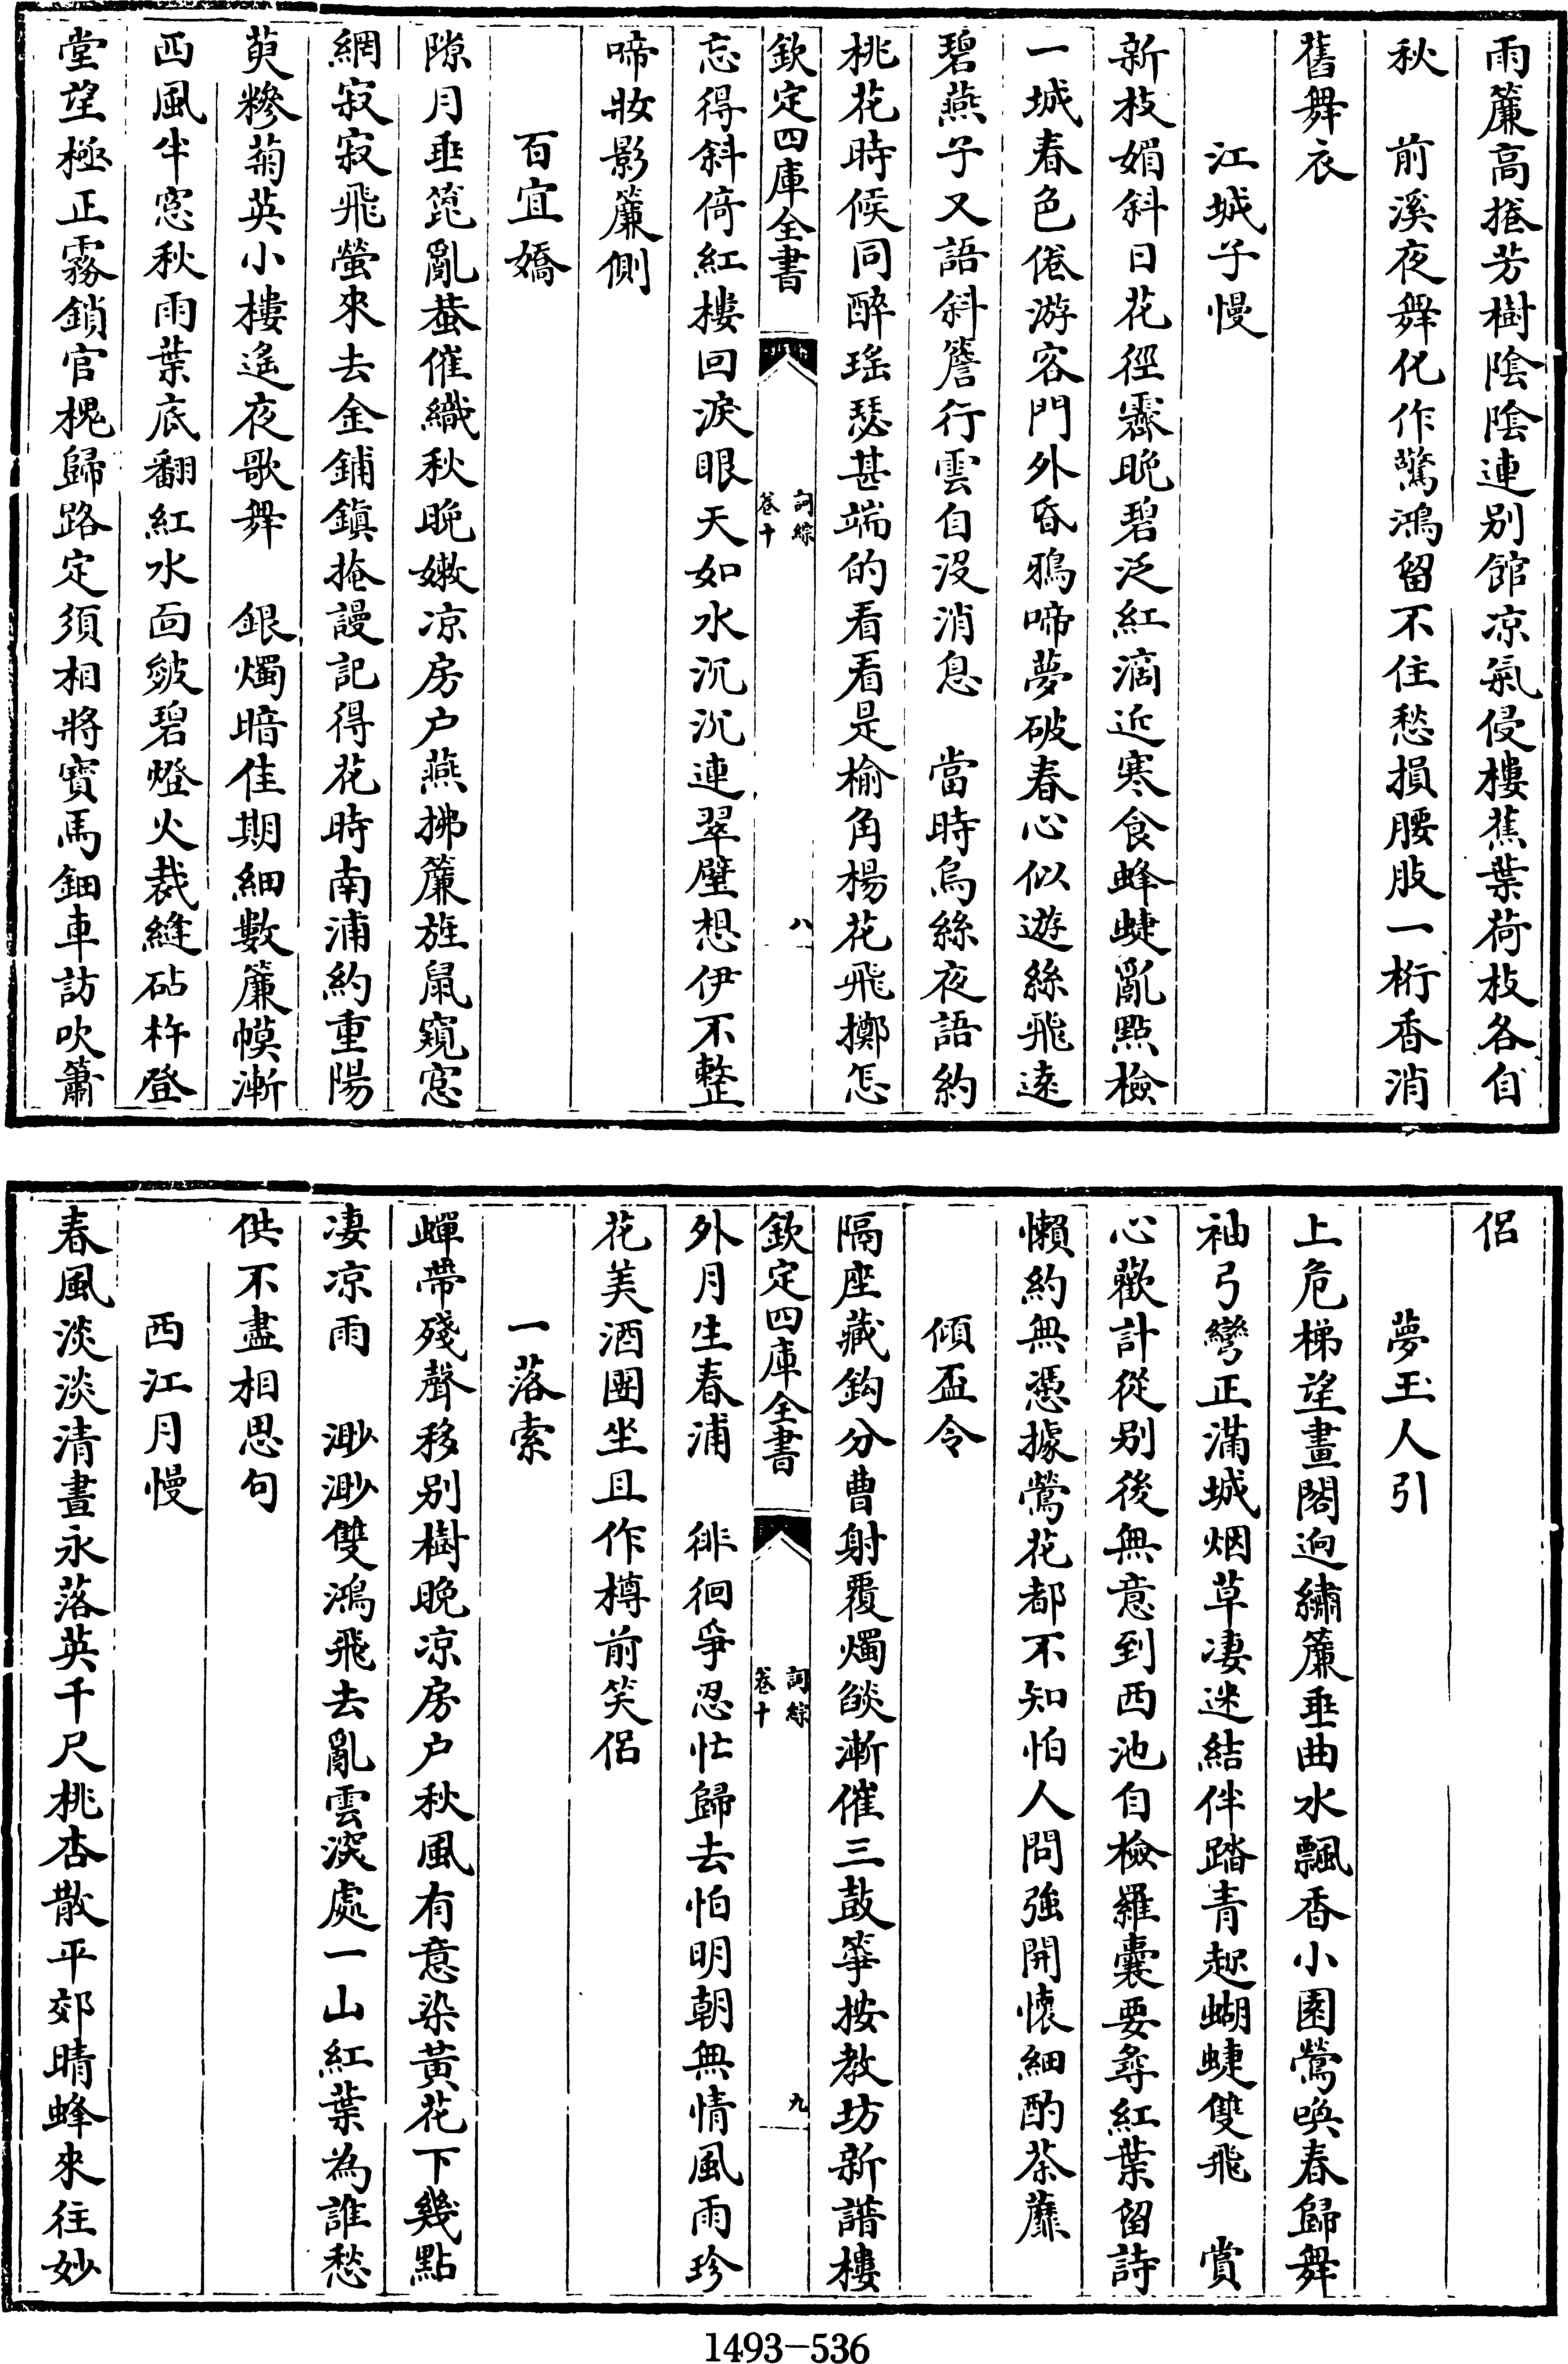 雨簾高捲芳樹陰陰連別館凉氣侵樓蕉葉荷枝各自
秋　前溪夜舞化作驚鴻留不住愁損腰肢一桁香消
舊舞衣
江城子慢
新枝媚斜日花徑霽晚碧泛紅滴近寒食蜂蜨亂點檢
一城春色倦游客門外昏鴉啼夢破春心似遊絲飛遠
碧燕子又語斜簷行雲自没消息　當時烏絲夜語約
桃花時候同醉瑤瑟甚端的看看是榆角楊花飛擲怎
欽定四庫全書
詞綜
卷十
八
忘得斜倚紅樓回淚眼天如水沉沉連翠壁想伊不整
啼妝影簾側
百宜嬌
隙月垂箆亂蛩催織秋晚嫩凉房户燕拂簾旌鼠窺窻
網寂寂飛螢來去金鋪鎮掩謾記得花時南浦約重陽
萸糝菊英小樓遙夜歌舞　銀燭暗佳期細數簾幙漸
西風午窻秋雨葉底翻紅水面皴碧燈火裁縫砧杵登
堂望極正霧鎖官槐歸路定須相將寶馬鈿車訪吹簫
侣
夢玉人引
上危梯望畫閣迥繡簾垂曲水飄香小園鶯喚春歸舞
袖弓彎正滿城烟草凄迷結伴踏青趂蝴蜨雙飛　賞
心歡計從别後無意到西池自檢羅囊要尋紅葉留詩
懶約無憑據鶯花都不知怕人問強開懷細酌荼蘼
傾盃令
隔座藏鈎分曹射覆燭燄漸催三鼓筝按教坊新譜樓
欽定四庫全書
詞綜
卷十
九
外月生春浦　徘徊爭忍忙歸去怕明朝無情風雨珍
花美酒團坐且作樽前笑侣
一落索
蟬帶殘聲移别樹晚凉房户秋風有意染黄花下幾點
凄凉雨　渺渺雙鴻飛去亂雲深處一山紅葉為誰愁
供不盡相思句
西江月慢
春風淡淡清晝永落英千尺桃杏散平郊晴蜂來往妙
1493-536